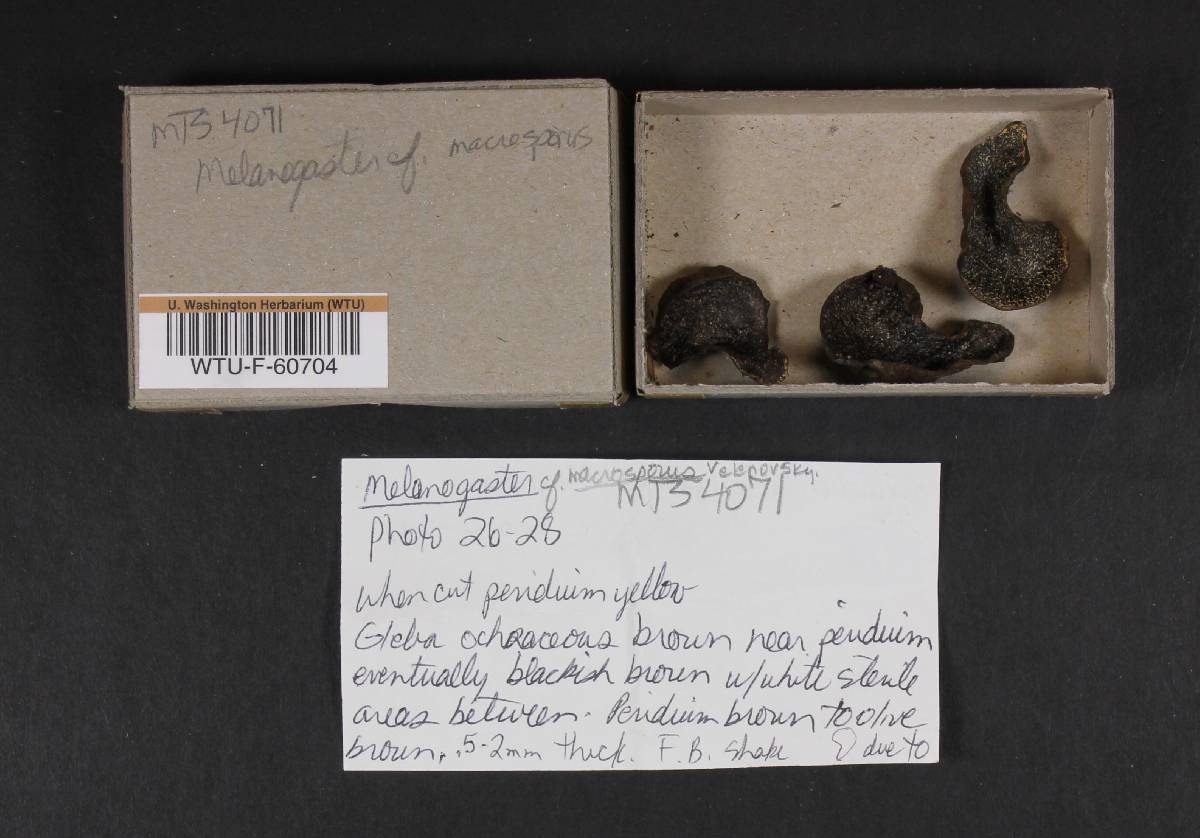 MTS 4071
Melanogaster cf. macrosporus
U. Washington Herbarium (WTU)
WTU-F-60704
Melanogaster cf. macrosporus Velenovsky.
MTS 4071
Photo 26-28
when cut peridium yellow
Gleba ochraceous brown near peridium
eventually blackish brown w/white sterile
areas between. Peridium brown to olive
brown, .5-2mm thick. F.B. shape due to